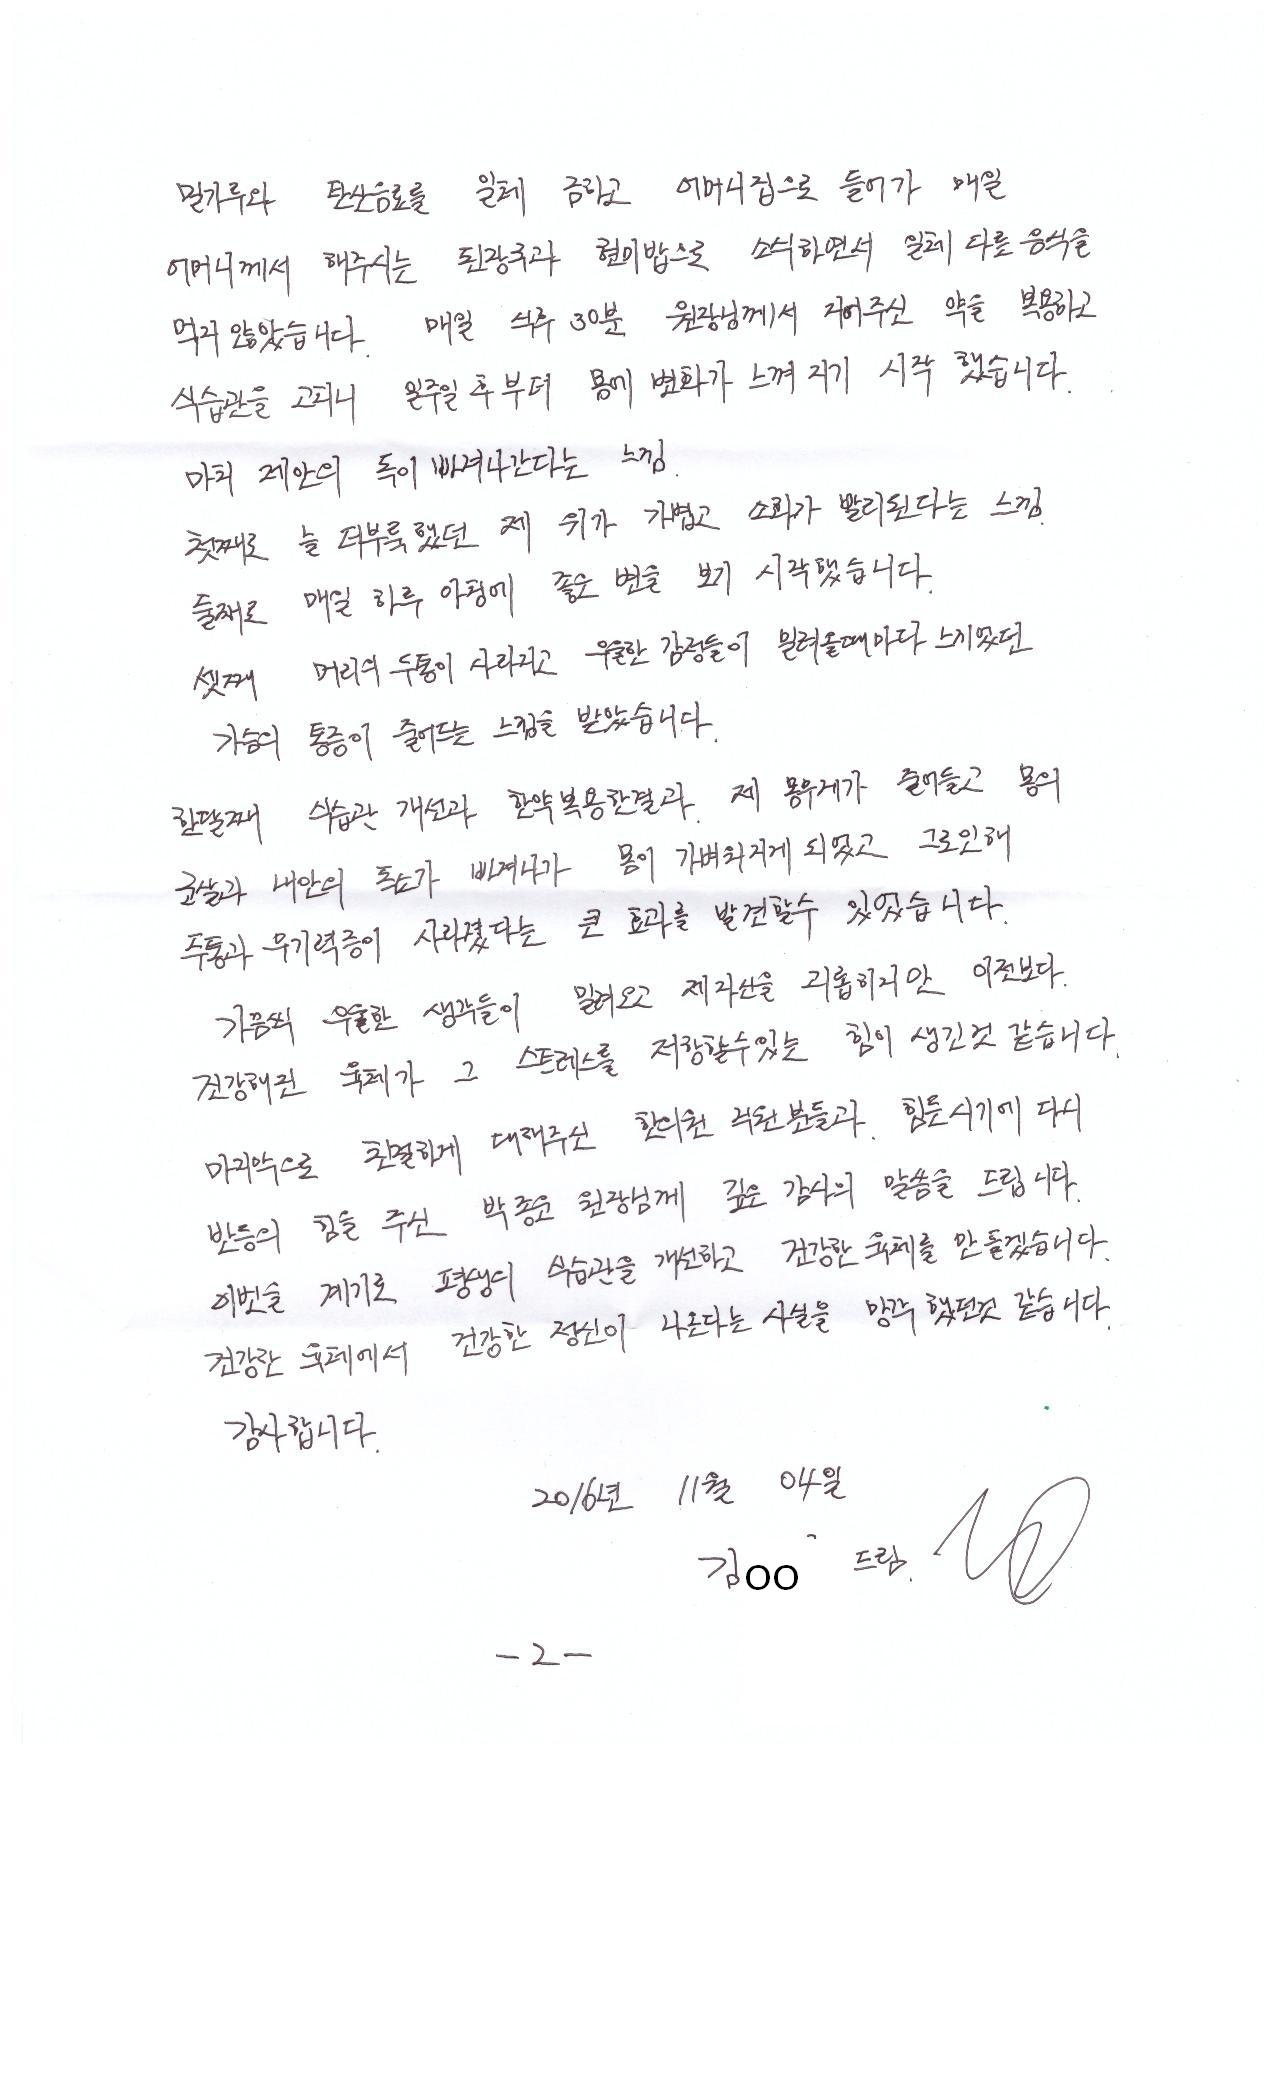 밀가루와 탄산음료를 일체 금하고 어머니집으로 들어가 매일
어머니께서 해주시는 된장국과 현미밥으로 소식하면서 일체 다른 음식을
먹지 않았습니다. 매일 식후 30분 원장님께서 지어주신 약을 복용하고
식습관을 고치니 일주일 후 부터 몸에 변화가 느껴 지기 시작 했습니다.
마치 제안의 독이 빠져나간다는 느낌.
첫째로 늘 더부룩했던 제 위가 가볍고 소화가 빨리된다는 느낌.
둘째로 매일 하루 아침에 좋은 변을 보기 시작했습니다.
셋째 머리의 두통이 사라지고 우울한 감정들이 밀려올때마다 느끼었던
가슴의 통증이 줄어드는 느낌을 받았습니다.
한달째 식습관 개선과 한약복용한결과. 제 몸무게가 줄어들고 몸의
군살과 내안의 독소가 빠져나가 몸이 가벼워지게 되었고 그로인해
두통과 무기력증이 사라졌다는 큰 효과를 발견할수 있었습니다.
가끔씩 우울한 생각들이 밀려오고 제자신을 괴롭히지만 이전보다.
건강해진 육체가 그 스트레스를 저항할수있는 힘이 생긴것 같습니다.
마지막으로 친절하게 대해주신 한의원 직원분들과. 힘든시기에 다시
반등의 힘을 주신 박종운 원장님께 깊은 감사의 말씀을 드립니다.
이번을 계기로 평생의 식습관을 개선하고 건강한 육체를 만들겠습니다.
건강한 육체에서 건강한 정신이 나온다는 사실을 망각했던것 같습니다.
감사합니다.
2016년 11월 04일
김OO 드림.
-2-